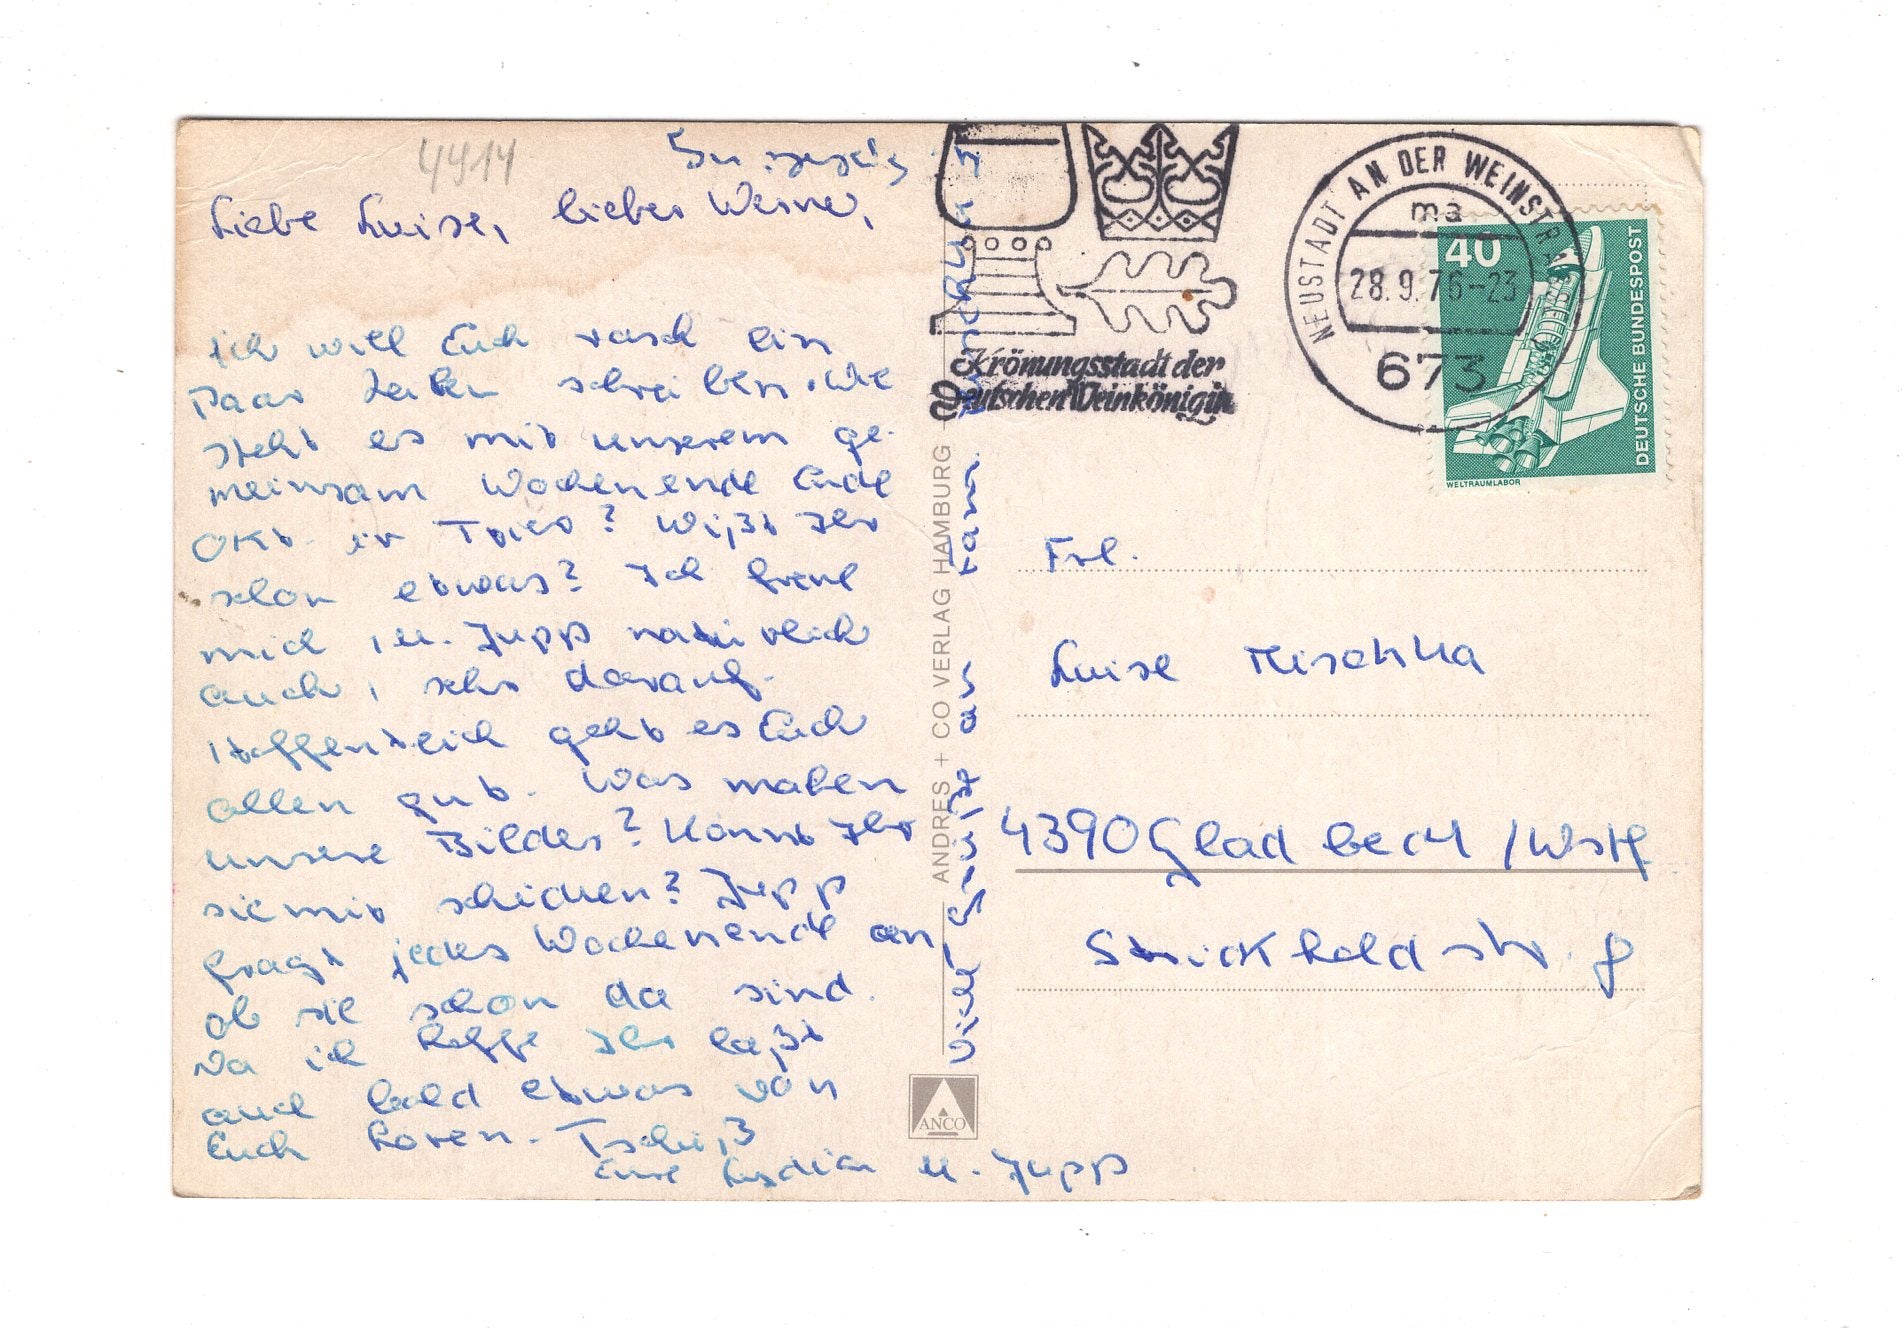 4414
Liebe Luise, lieber Werner,
Ich will Euch rasch ein
Paar Zeilen schreiben. Wie
steht es mit unserem ge-
meinsam Wochenende Ende
Okt. in Trier? Wißt Ihr
schon etwas? Ich freue
mich, u. Jupp natürlich
auch, sehr darauf.
Hoffentlich geht es Euch
allen gut. Was machen
unsere Bilder? Könnt Ihr
sie mir schicken? Jupp
fragt jedes Wochenende an,
ob sie schon da sind.
Na ich hoffe Ihr laßt
auch bald etwas von
Euch hören. Tschüß
Eure Lydia u. Jupp
Viele Grüße an
Fam.
ANDRES + CO VERLAG HAMBURG
ANCO
Krönungsstadt der
Deutschen Weinkönigin
NEUSTADT AN DER WEINSTR
ma
28.9.76-23
673
40
DEUTSCHE BUNDESPOST
WELTRAUMLABOR
Frl.
Luise Mischka
4390 Gladbeck /Westf